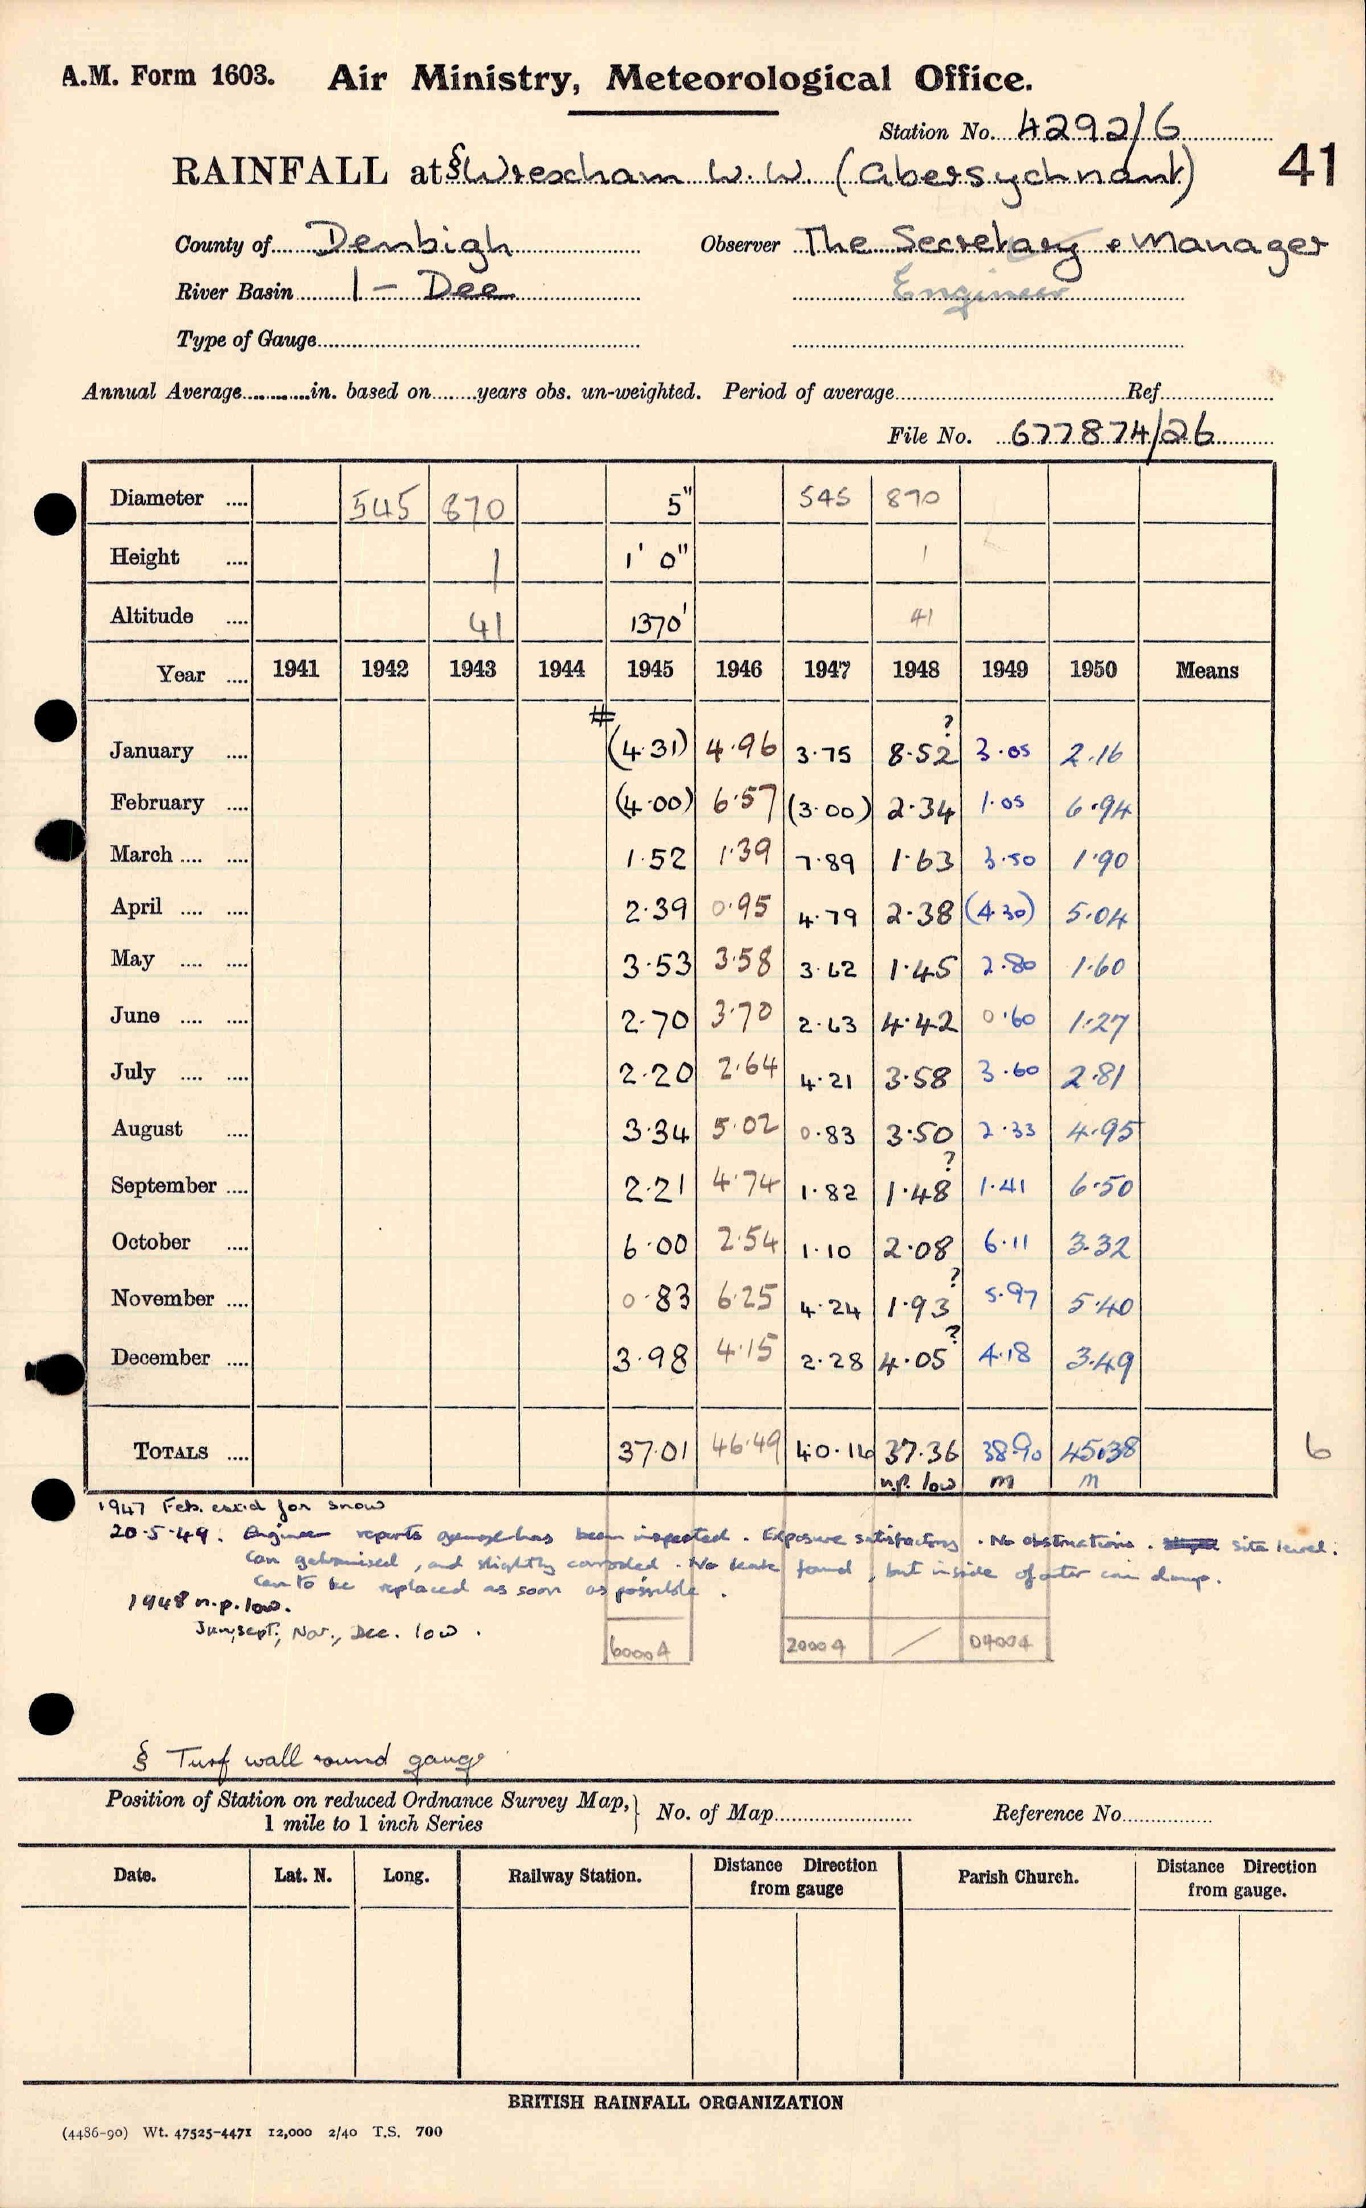 A.M. Form 1603. Air Ministry, Meteorological Office.
Station No. 4292/6
RAINFALL at § Wrexham W.W. (Abersychnant) 41
County of Denbigh Observer The Secretary & Manager
River Basin 1 - Dee Engineer
Type of Gauge
Annual Average in. based on years obs. un-weighted. Period of average Ref
File No. 677874/26
Diameter 545 870 5" 545 870
Height 1 1' 0" 1
Altitude 41 1370' 41
Year 1941 1942 1943 1944 1945 1946 1947 1948 1949 1950 Means
# ?
January (4.31) 4.96 3.75 8.52 3.05 2.16
February (4.00) 6.57 (3.00) 2.34 1.05 6.94
March 1.52 1.39 7.89 1.63 3.50 1.90
April 2.39 0.95 4.79 2.38 (4.30) 5.04
May 3.53 3.58 3.62 1.45 2.80 1.60
June 2.70 3.70 2.63 4.42 0.60 1.27
July 2.20 2.64 4.21 3.58 3.60 2.81
August 3.34 5.02 0.83 3.50 2.33 4.95
?
September 2.21 4.74 1.82 1.48 1.41 6.50
October 6.00 2.54 1.10 2.08 6.11 3.32
?
November 0.83 6.25 4.24 1.93 5.97 5.40
?
December 3.98 4.15 2.28 4.05 4.18 3.49
TOTALS 37.01 46.49 40.16 37.36 38.90 45.38 6
n.p. low m m
1947 Feb. est'd for snow
20-5-49. Engineer reports gauge has been inspected. Exposure satisfactory. No obstructions. site level.
Can galvanised, and slightly corroded. No leak found, but inside of outer can damp.
Can to be replaced as soon as possible.
1948 n.p. low.
Jun, Sept., Nov., Dec. low.
6000A 2000A / 0400A
§ Turf wall round gauge
Position of Station on reduced Ordnance Survey Map, } No. of Map Reference No.
1 mile to 1 inch Series
Date. Lat. N. Long. Railway Station. Distance Direction from gauge Parish Church. Distance Direction from gauge.
BRITISH RAINFALL ORGANIZATION
(4486-90) Wt. 47525-4471 12,000 2/40 T.S. 700